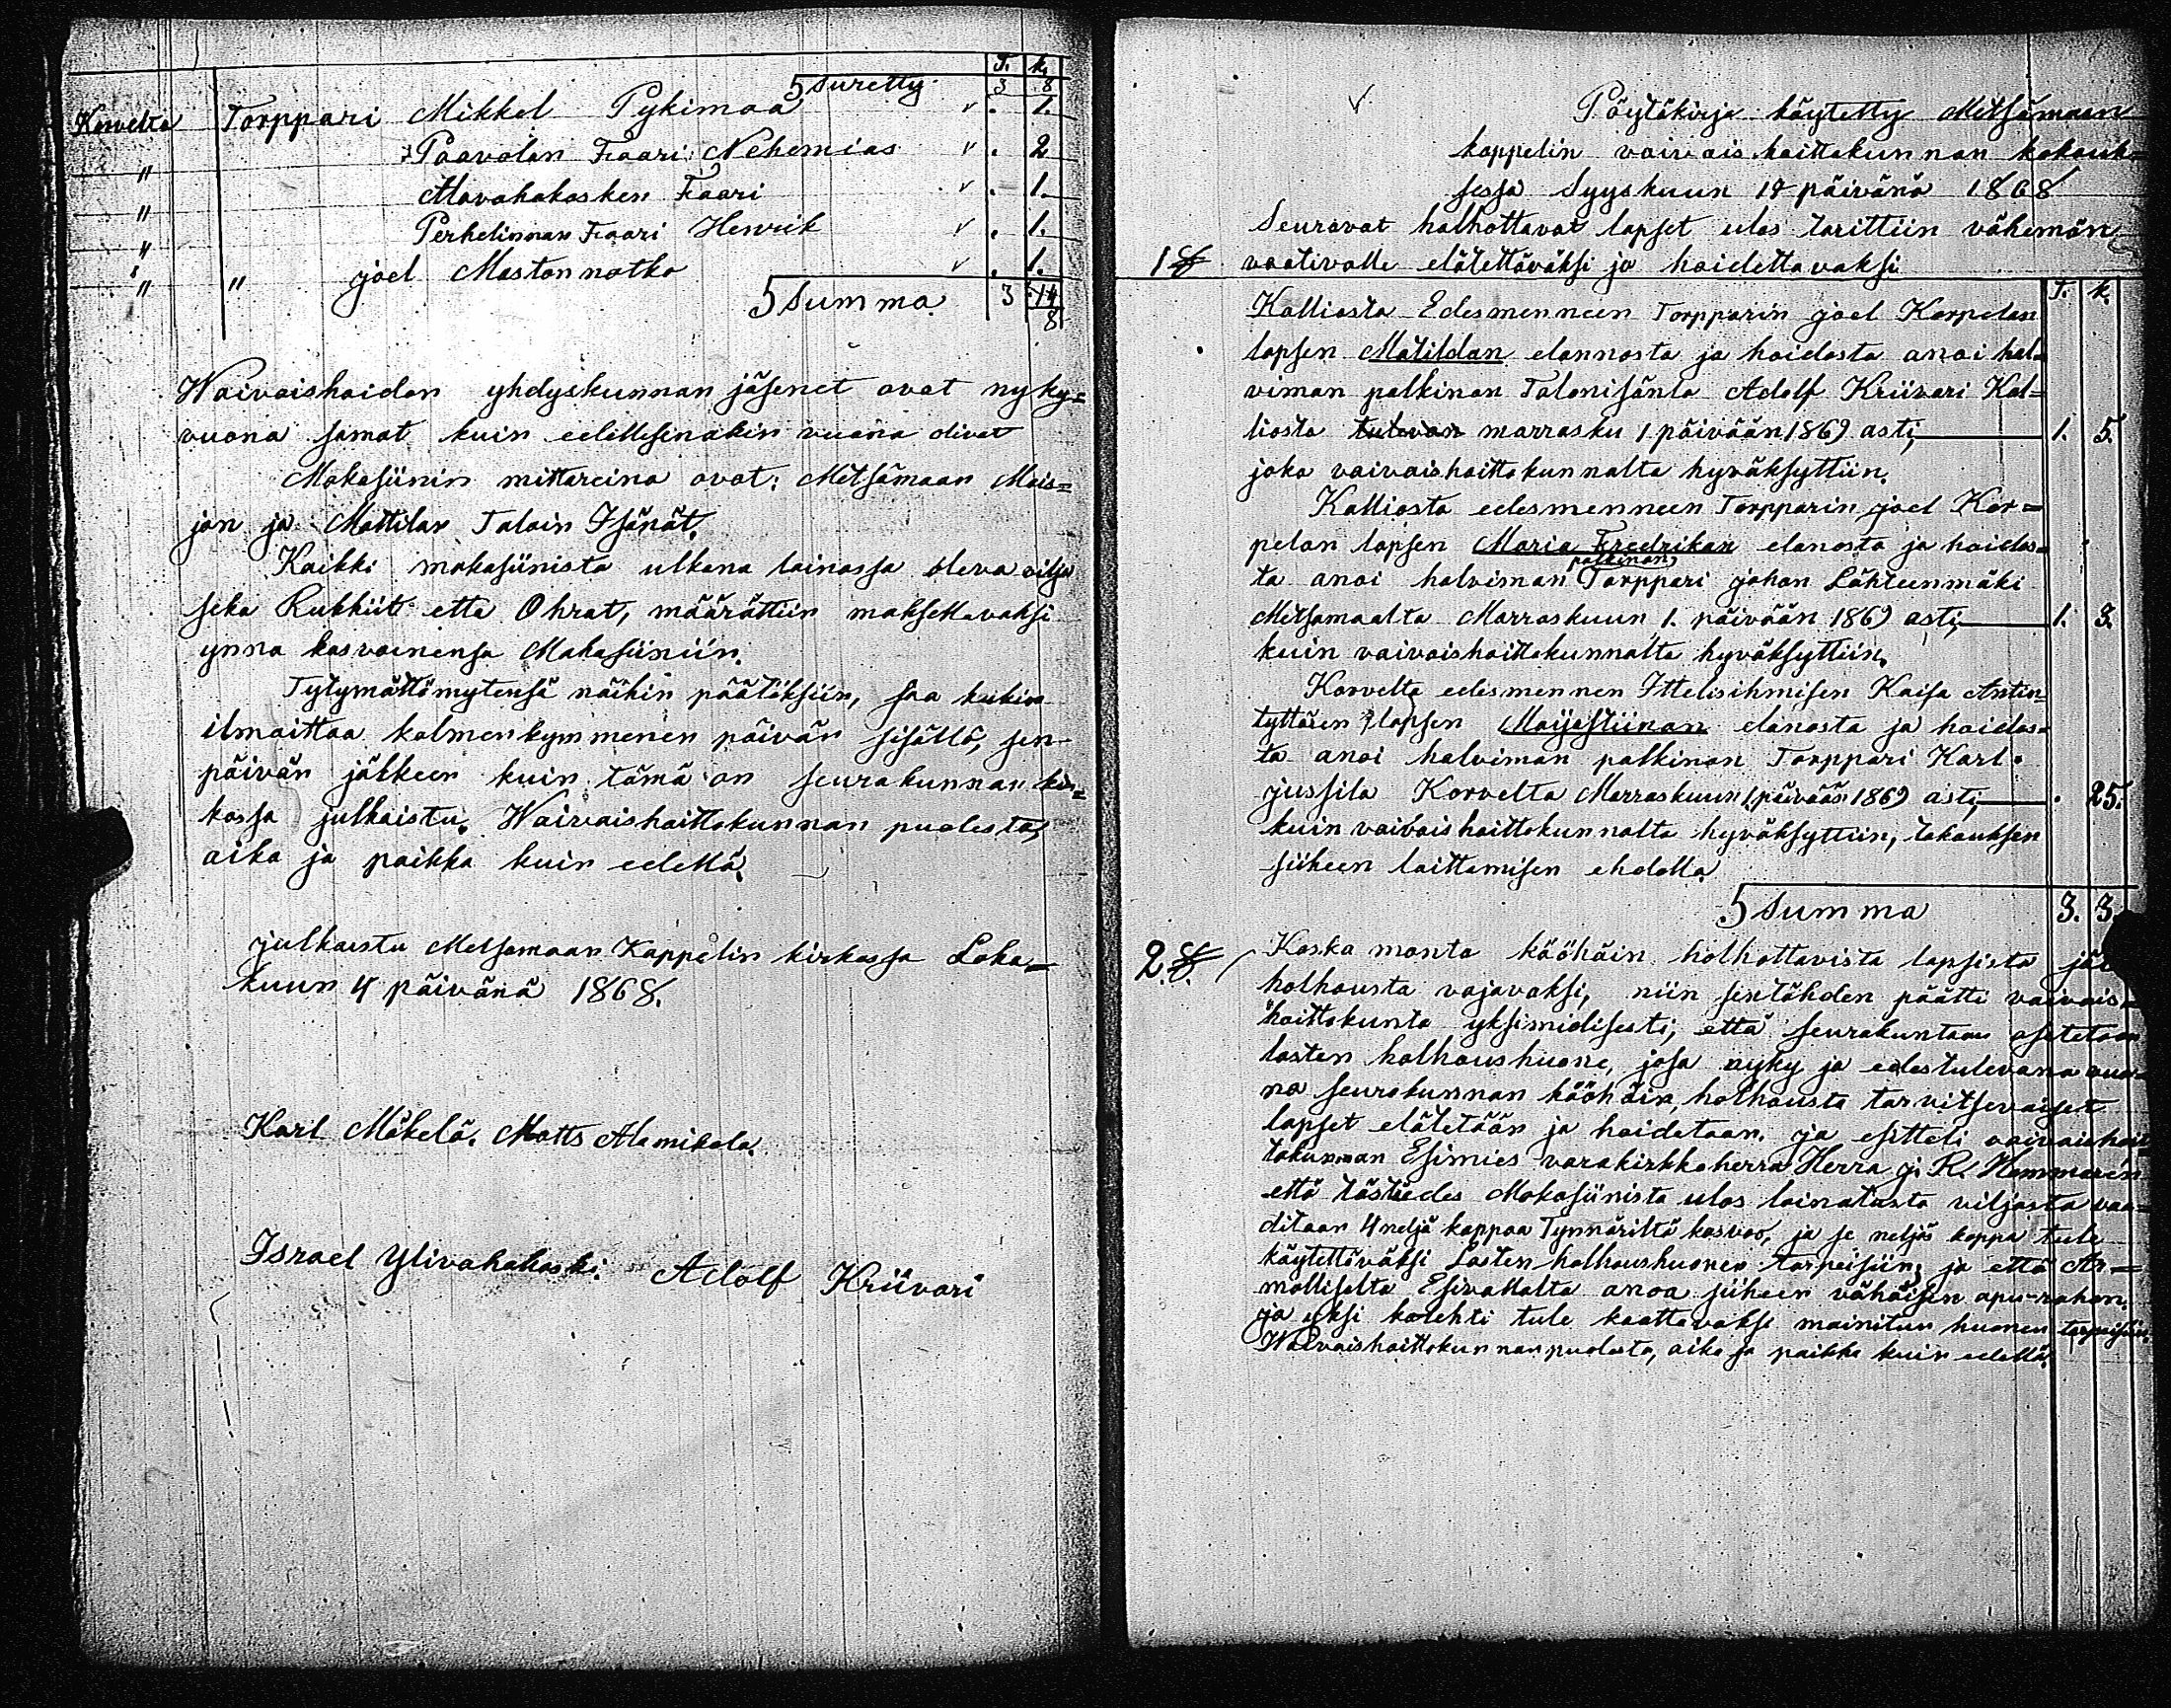 T. k.
Ssuretty 3 8
Korvelta Torppari Mikkel Pykimaa . 1.
" Paavolan Faari Nehemias . 2
" Alavahakosken Faari . 1.
" Perhelinnan Faari Henrik . 1.
" " joel Mastonnotko . 1.
Ssumma. 3 14
8
Waivaishoidon yhdyskunnan jäsenet ovat nyky=
vuona samat kuin eelillesinäkin vuona olivat
Makasiinin mittareina ovat: Metsämaan Mois=
jon ja Mattilan Taloin Isänät.
Kaikki makasiinista ulkona lainassa oleva vilja
seka Rukkiit etta Ohrat, määrättiin maksettavaksi
ynna kasvoinensa Makasiiniin.
Tytymättömytensä näihin päätöksiin, saa kukin
ilmoittaa kolmenkymmenen päivän sisällä, sen
päivän jälkeen kuin tämä on seurakunnan kir=
kossa julkaistu. Waivaishoittokunnan puolesta,
aika ja paikka kuin eelellä.
julkaistu Metsamaan Kappelin kirkossa Loka=
kuun 4 päivänä 1868.
Karl Mäkelä. Matts Alamikola.
Israel Ylivahakoski. Adolf Kriivari
Pöytäkirja käytetty Metsämaan
kappelin vaivais hoittokunnan kokouk=
sessa Syyskuun päivänä 1868
Seuravat holhottavat lapset ulos tarittiin vähemän
1 § vaativalle elätettäväksi ja hoidettavaksi
T. k.
Kalliosta Edesmenneen Torpparin joel Korpelan
lapsen Matildan elannosta ja hoidosta anoi hal=
viman palkinon Talonisänta Adolf Kriivari Kal=
liosta tulevan marrasku 1 päivään 1869 asti, 1. 5.
joka vaivaishoittokunnalta hyväksyttiin.
Kalliosta edesmenneen Torpparin joel Kor=
pelan lapsen Maria Fredrikan elanosta ja hoidos=
palkinon
ta anoi halviman Torppari johan Lähteenmäki
Metsamaalta Marraskuun 1. päivään 1869 asti, 1. 3.
kuin vaivaishoittokunnalta hyväksyttiin.
Korvelta edesmennen Ittelisihmisen Kaisa Antin
tyttären lapsen Maijastiinan elanosta ja hoidos=
ta anoi halviman palkinon Torppari Karl
jussila Korvelta Marraskuun 1 päivään 1869 asti, . 25.
kuin vaivais hoittokunnalta hyväksyttiin, takauksen
siiheen laittamisen ehdolla
Ssumma 3. 3.
2. § Koska monta kööhäin holhottavista lapsista
holhousta vajavaksi, niin sentähden päätti vaivais=
hoittokunta yksimielisesti, että seurakuntaan asetetaan
lasten holhoushuone, josa nyky ja edestulevana vuo=
na seurakunnan kööhäin, holhousta tarvitsevaiset
lapset elätetään ja hoidetaan. ja esitteli vaivaishoit=
tokunnan Esimies varakirkkoherra Herra j. R. Hammaren
että tästedes Makasiinista ulos lainatusta viljasta vaa=
ditaan 4 neljä kappaa Tynnäriltä kasvoo, ja se neljäs kappa tule
käytettäväksi Lasten holhoushuonen tarpeisiin; ja että Ar=
molliselta Esivallalta anoa siiheen vähäisen apu-rahan.
ja yksi kolehti tule koottavaksi mainitun huonen tarpeisiin.
Waivaishoittokunnan puolesta, aika ja paikka kuin eelellä.